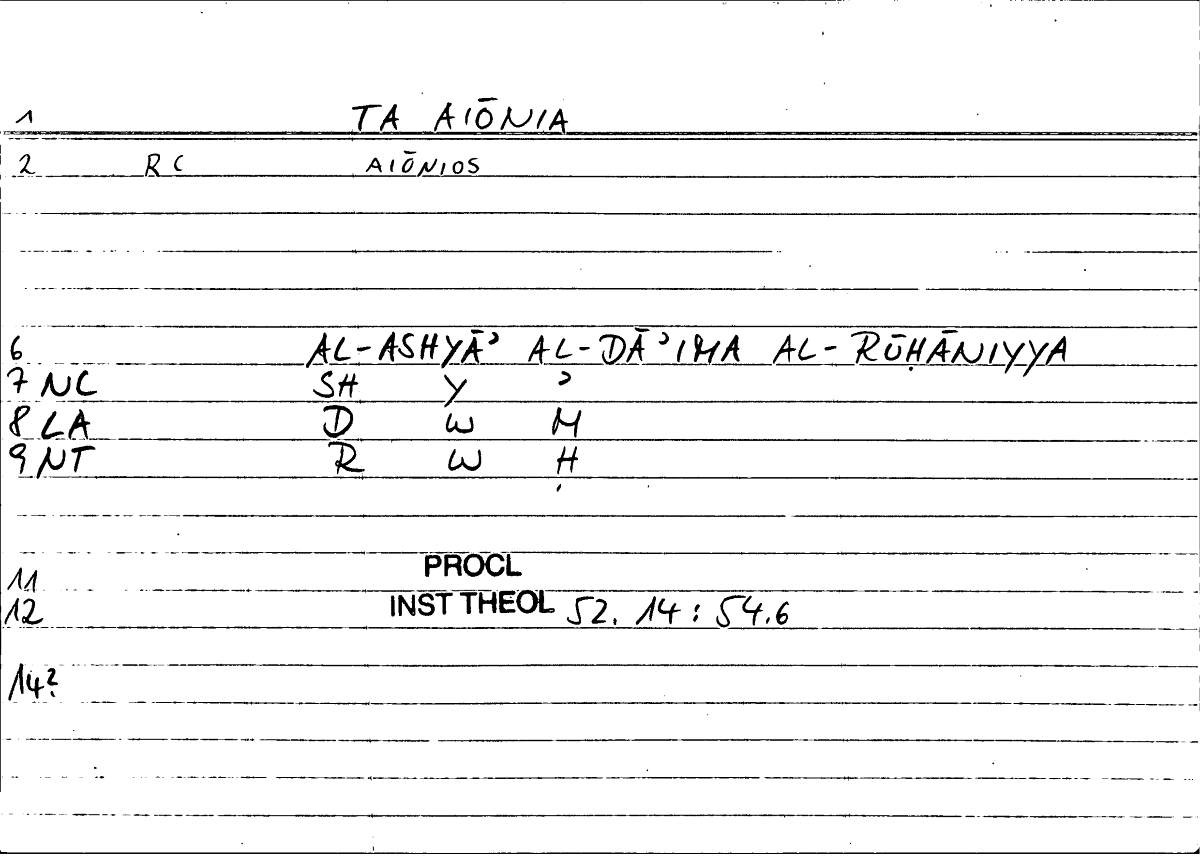 1 TA AIŌNIA
2 RC AIŌNIOS
6 AL-ASHYĀʾ AL-DĀʾIMA AL-RŪḤĀNIYYA
7 NC SH Y ʾ
8 LA D W M
9 NT R W Ḥ
11 PROCL
12 INST THEOL 52. 14 : 54.6
14?